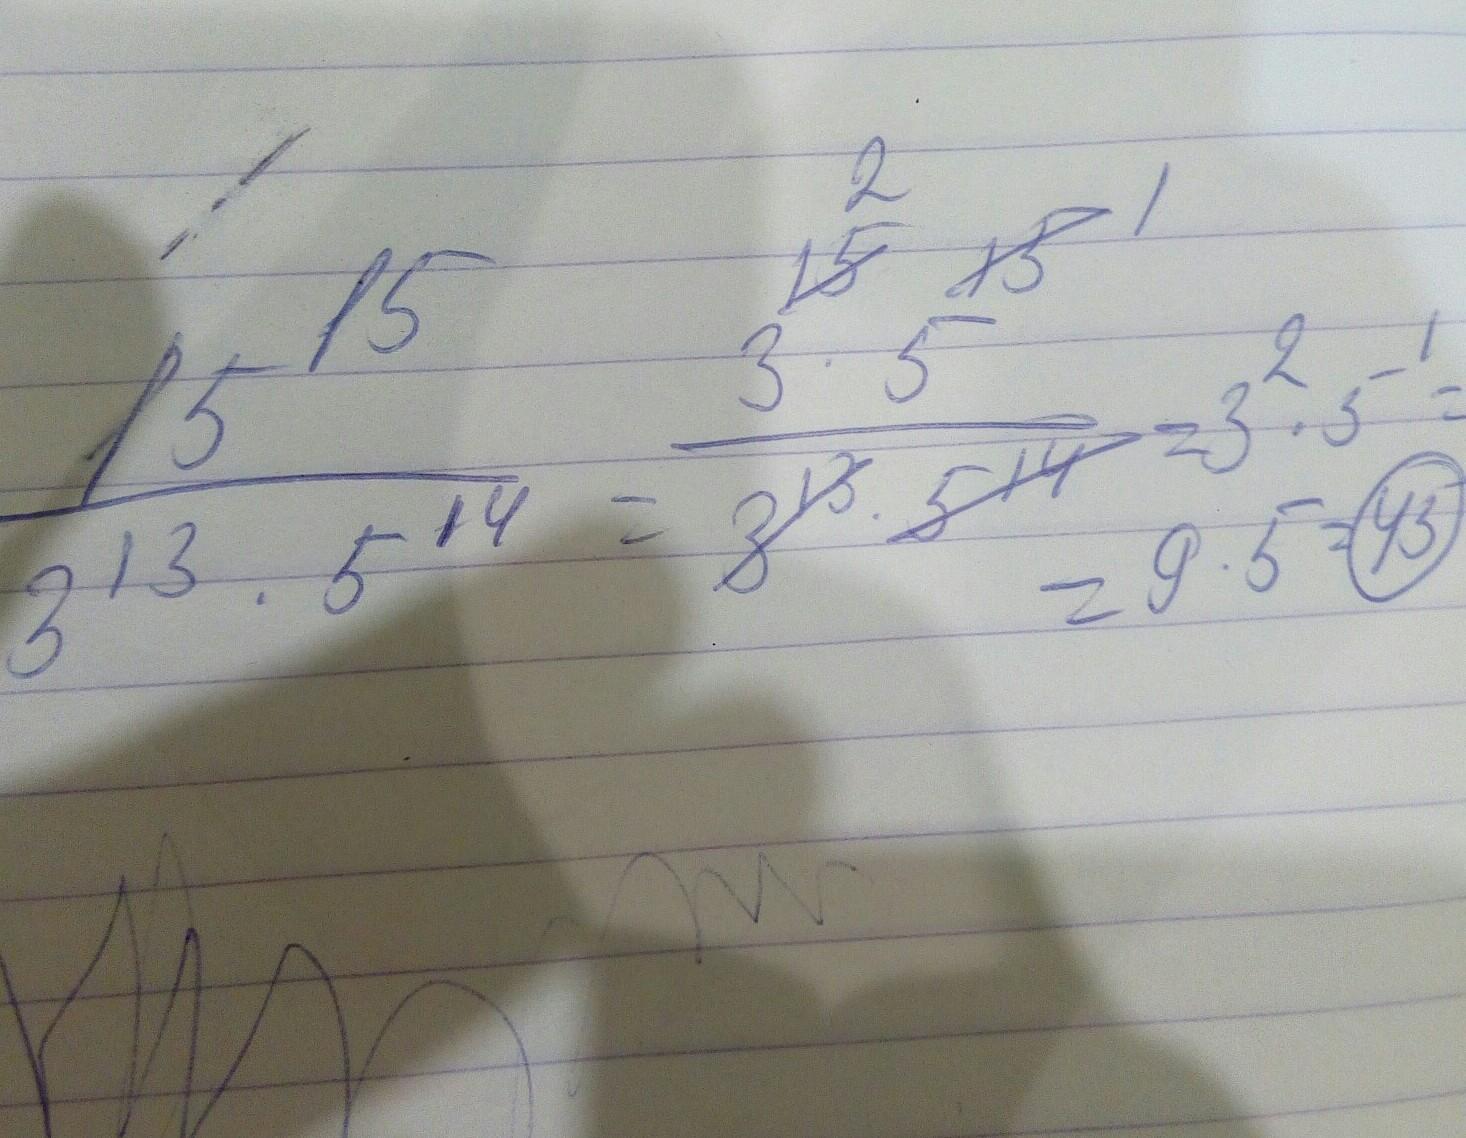 15^15 / (3^13 · 5^14) = 3^15 · 5^15 / (3^13 · 5^14) = 3^2 · 5^1 =
= 9 · 5 = 45